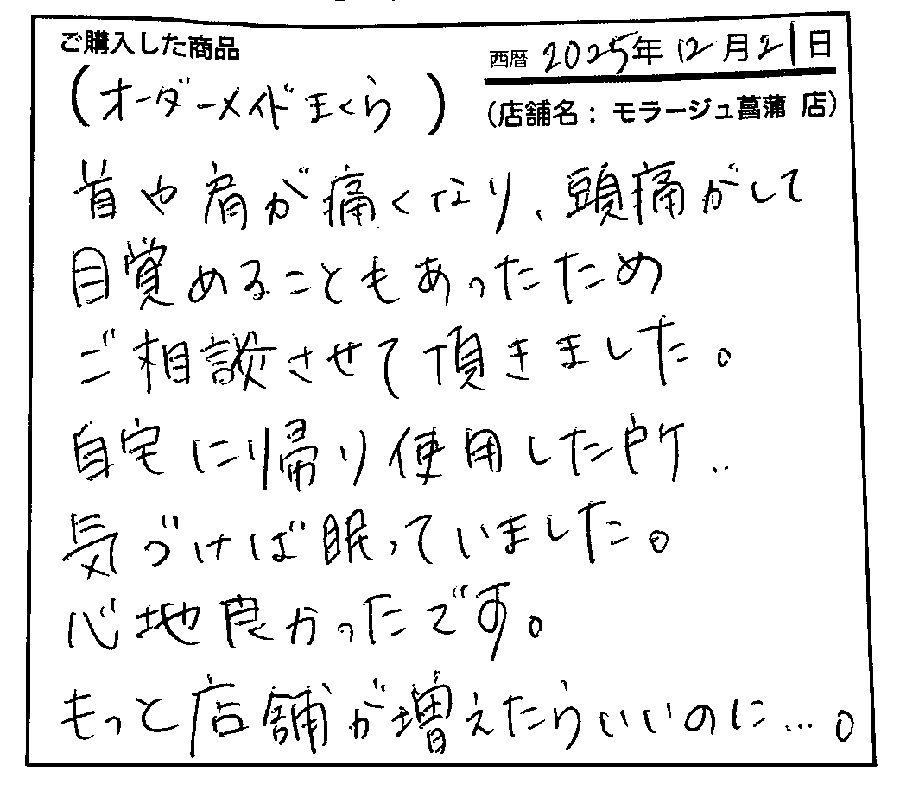 ご購入した商品
西暦 2025年 12月21日
(オーダーメイドまくら)
(店舗名：モラージュ菖蒲 店)
首や肩が痛くなり、頭痛がして
目覚めることもあったため
ご相談させて頂きました。
自宅に帰り使用した所‥
気づけば眠っていました。
心地良かったです。
もっと店舗が増えたらいいのに…。